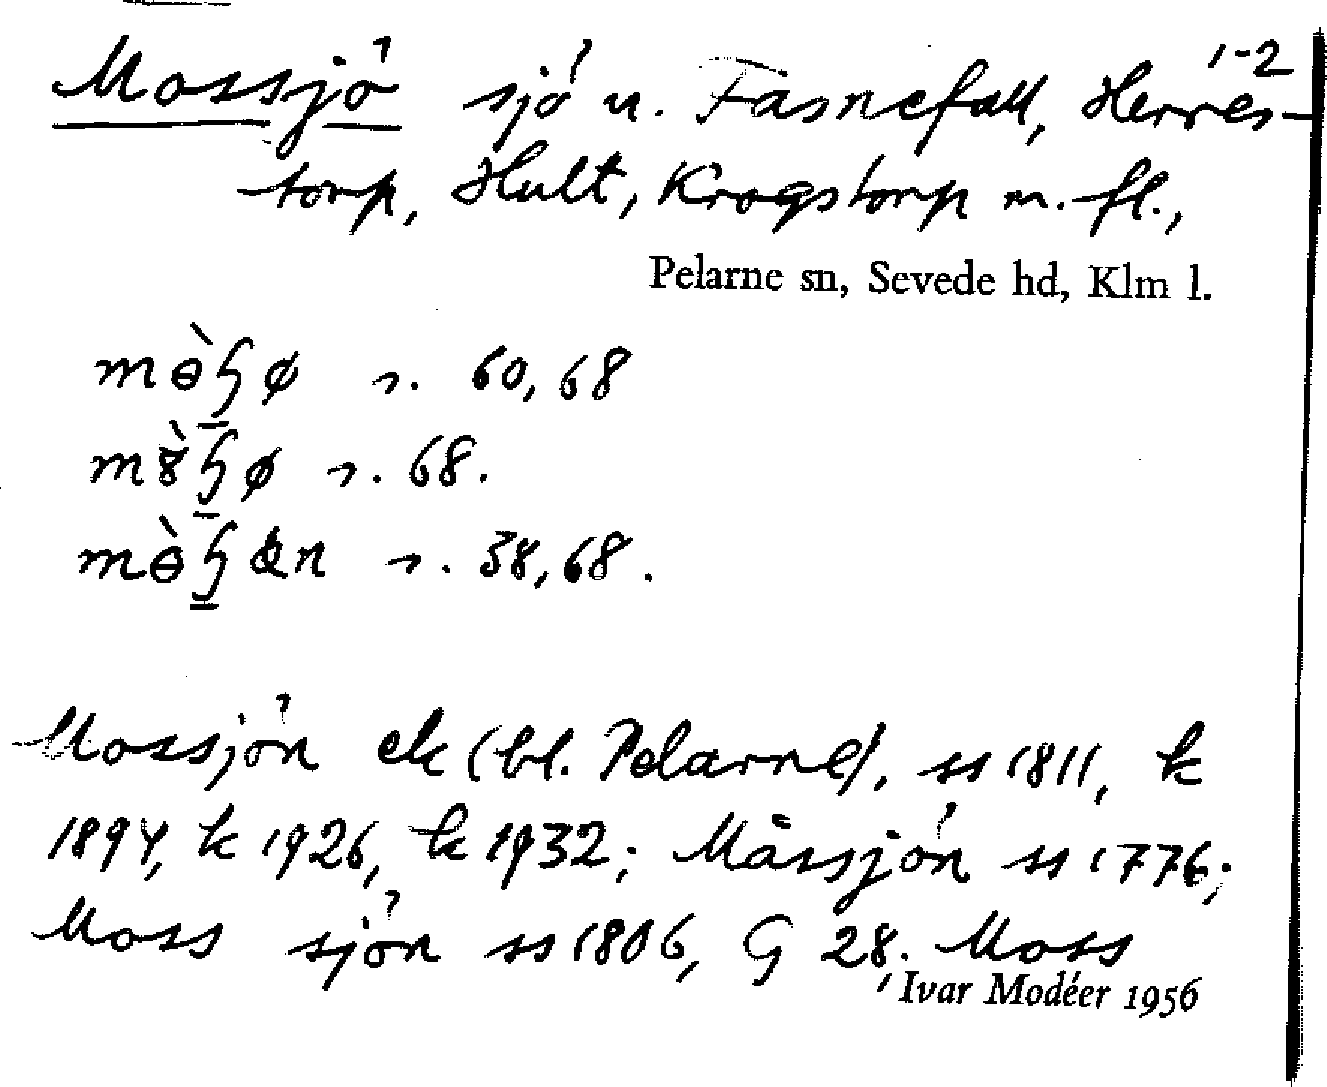 1-2
Mossjö sjö u. Fasnefall, Herres-
torp, Hult, Krogstorp m. fl.,
Pelarne sn, Sevede hd, Klm l.
60, 68
68.
58, 68.
Mossjön ek (bl. Pelarne), ss 1811, k
1894, k 1926, k 1932; Måssjön ss 1776;
Moss sjön ss 1806, G 28, Moss
Ivar Modéer 1956